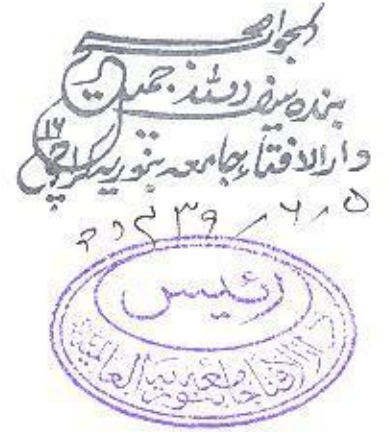 الجواب صحیح
بندہ سیف اللہ جمیل
دار الافتاء جامعہ بنوریہ کراچی ۱۶
۵/۶/۱۴۳۹ھ
رئیس
دار الافتاء جامعه بنوریة العالمیة